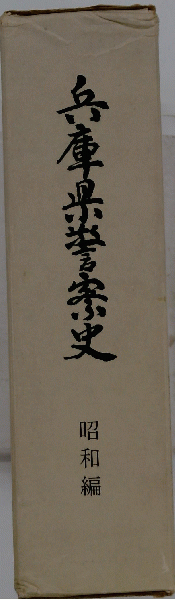 兵庫県警察史
昭和編